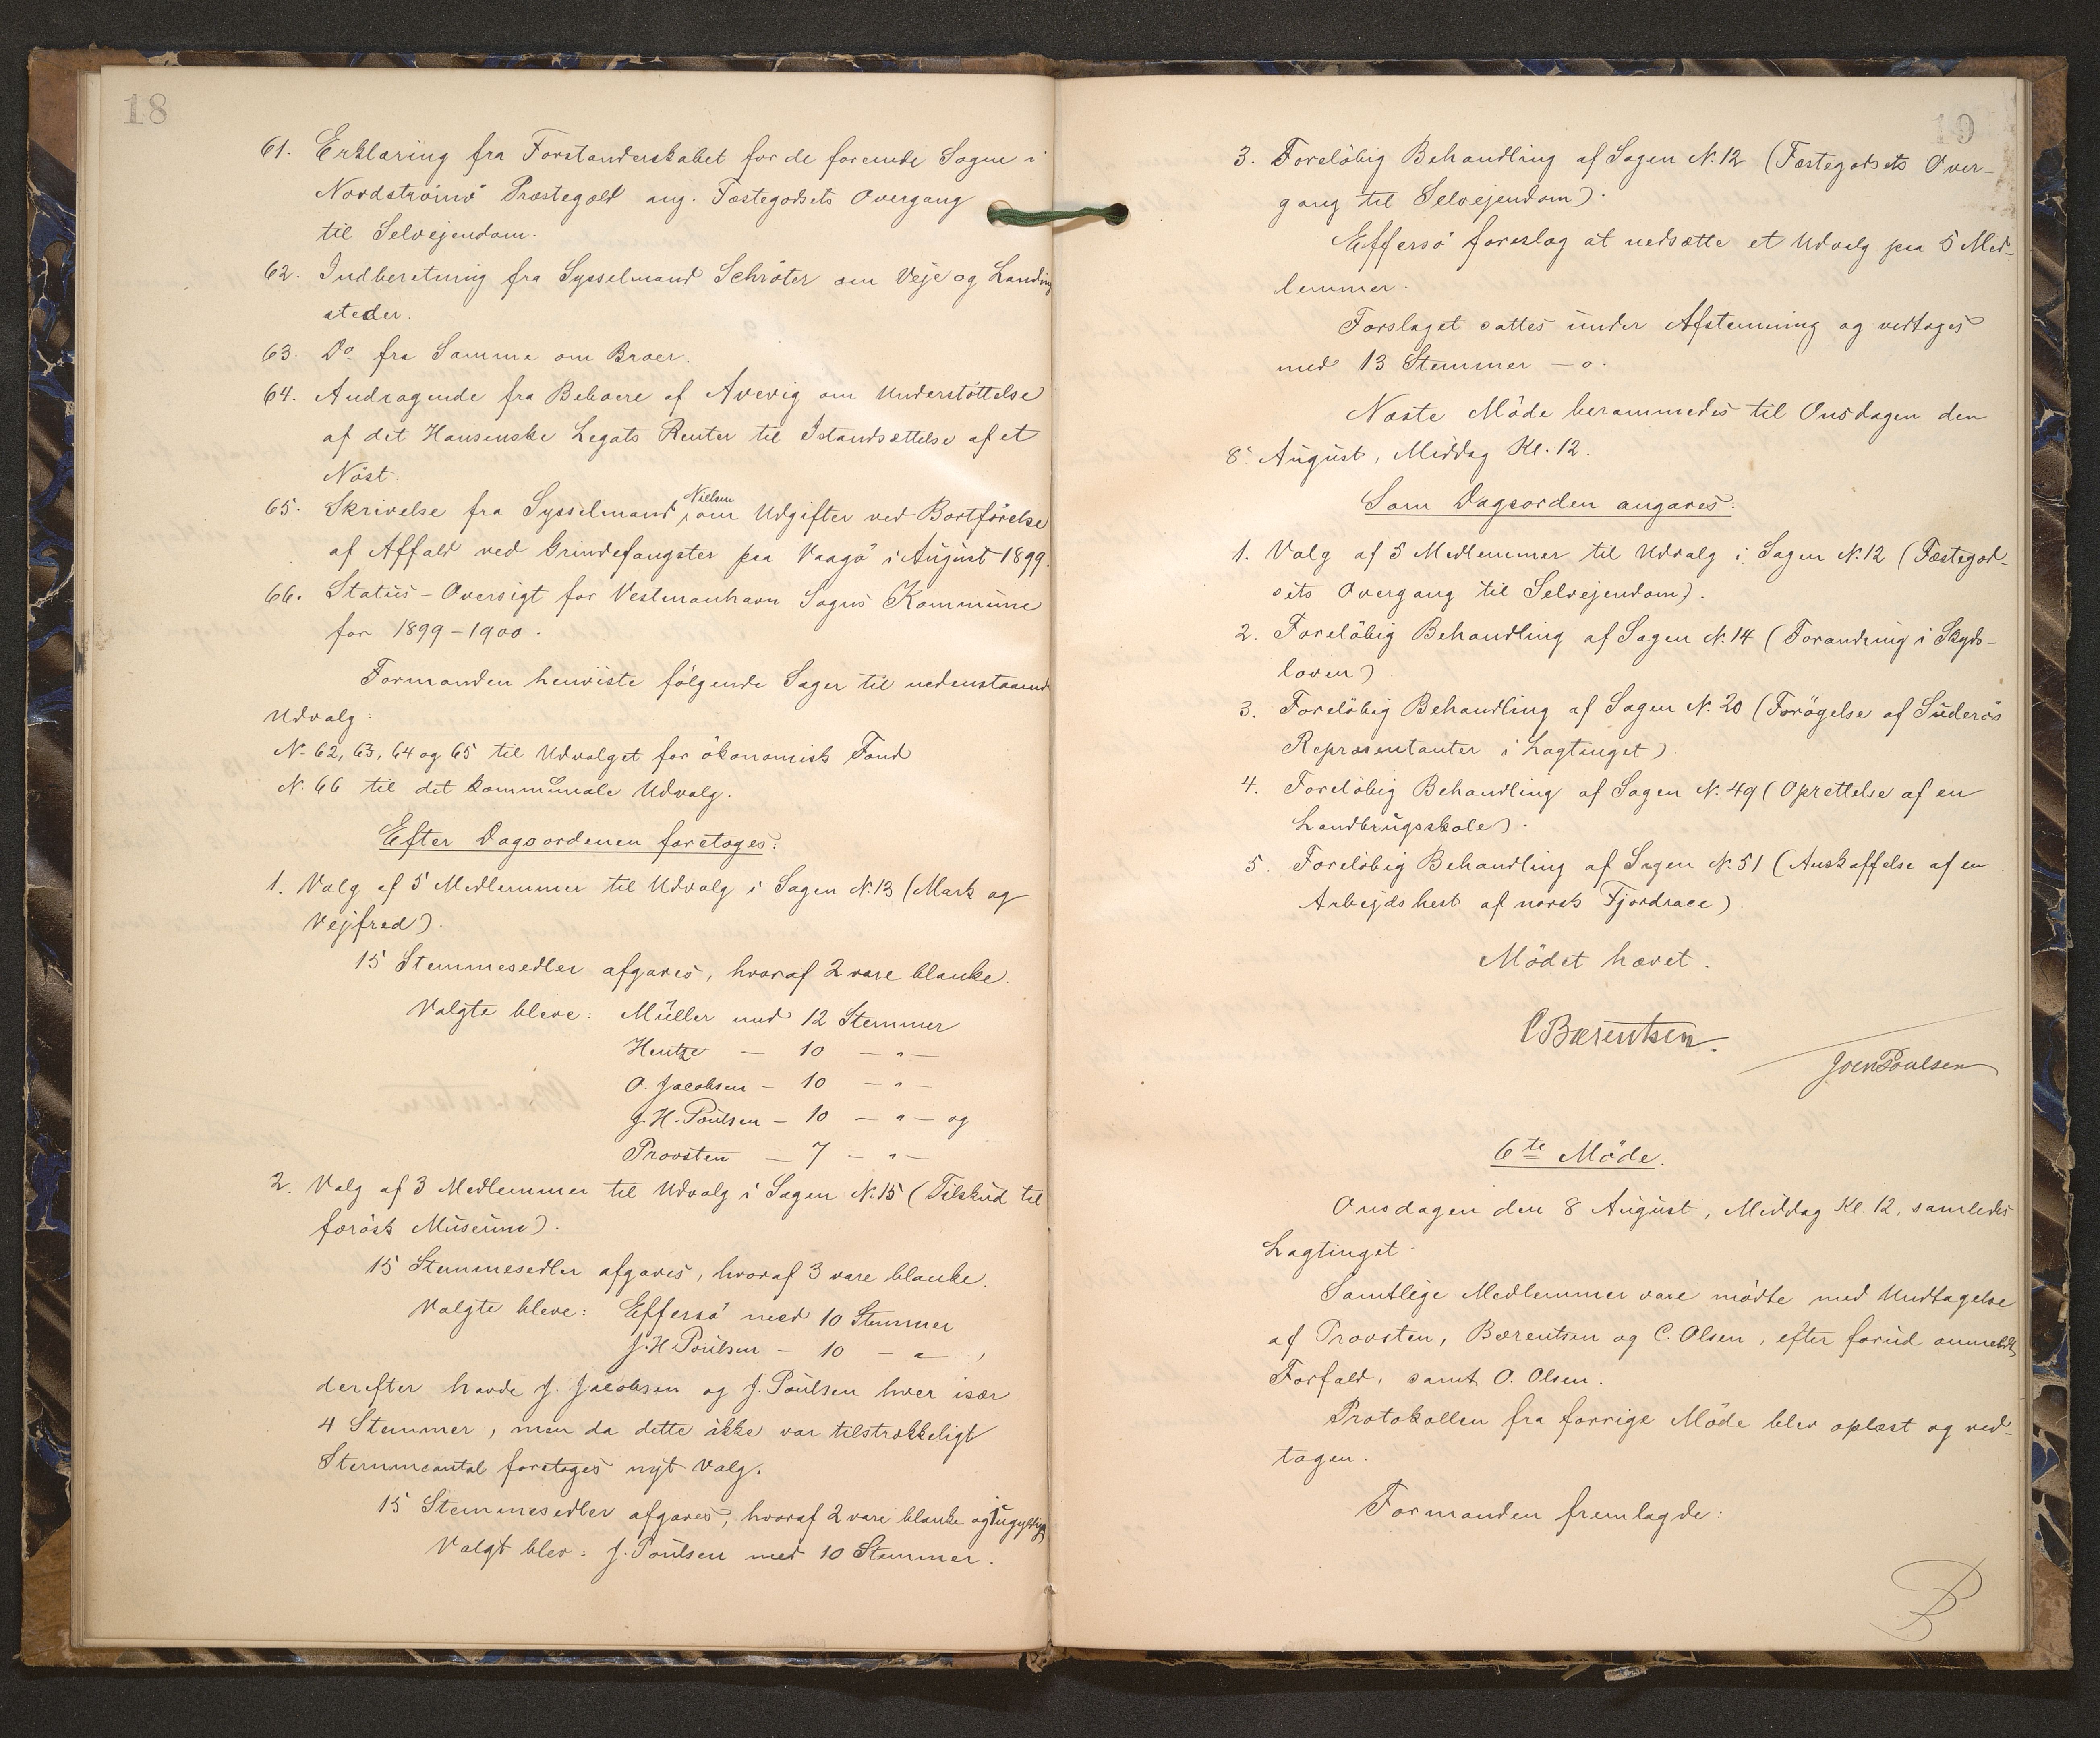 18
61. Erklæring fra Forstanderskabet for de forenede Sogne i
Nordstrømø Præstegæld ang. Fæstegodsets Overgang
til Selvejendom.
62. Indberetning fra Sysselmand Schrøter om Veje og Landing
steder.
63. Do fra Samme om Broer.
64. Andragende fra Beboere af Arevig om Understøttelse
af det Hansenske Legats Renter til Istandsættelse af et
Nöst.
65. Skrivelse fra Sysselmand Nielsen om Udgifter ved Bortförelse
af Affald ved Grindefangster paa Vaagö i August 1899.
66. Status-Oversigt for Vestmanhavn Sogns Kommune
for 1899-1900.
Formanden henviste følgende Sager til nedenstaaende
Udvalg:
N. 62, 63, 64 og 65 til Udvalget for økonomisk Fond
N. 66 til det kommunale Udvalg.
Efter Dagsordenen foretoges:
1. Valg af 5 Medlemmer til Udvalg i Sagen N. 13 (Mark og
Vejfred).
15 Stemmesedler afgaves, hvoraf 2 vare blanke.
Valgte bleve: Müller med 12 Stemmer
Hentze — 10 — " —
O. Jacobsen — 10 — " —
J. H. Poulsen — 10 — " — og
Provsten — 7 — " —
2. Valg af 3 Medlemmer til Udvalg i Sagen N. 15 (Tilskud til
færösk Museum).
15 Stemmesedler afgaves, hvoraf 3 vare blanke.
Valgte bleve: Effersö med 10 Stemmer
J. H. Poulsen — 10 — " — ,
derefter havde J. Jacobsen og J. Poulsen hver især
4 Stemmer, men da dette ikke var tilstrækkeligt
Stemmeantal foretoges nyt Valg.
15 Stemmesedler afgaves, hvoraf 2 vare blanke og 1 ugyldig
Valgt blev: J. Poulsen med 10 Stemmer.
19
3. Forelöbig Behandling af Sagen N. 12 (Fæstegodsets Over-
gang til Selvejendom).
Effersö foreslog at nedsætte et Udvalg paa 5 Med-
lemmer.
Forslaget sattes under Afstemning og vedtoges
med 13 Stemmer — o.
Næste Möde berammedes til Onsdagen den
8. August, Middag Kl. 12.
Som Dagsorden angaves:
1. Valg af 5 Medlemmer til Udvalg i Sagen N. 12 (Fæstegod-
sets Overgang til Selvejendom).
2. Forelöbig Behandling af Sagen N. 14 (Forandring i Skyds-
loven)
3. Forelöbig Behandling af Sagen N. 20 (Forögelse af Suderös
Repræsentanter i Lagtinget).
4. Forelöbig Behandling af Sagen N. 49 (Oprettelse af en
Landbrugsskole).
5. Forelöbig Behandling af Sagen N. 51 (Anskaffelse af en
Arbejdshest af norsk Fjordrace)
Mödet hævet.
C Bærentsen.
Joen Poulsen
6te Möde.
Onsdagen den 8 August, Middag Kl. 12, samledes
Lagtinget.
Samtlige Medlemmer vare mödte med Undtagelse
af Provsten, Bærentsen og C. Olsen, efter forud anmeldt
Forfald, samt O. Olsen.
Protokollen fra forrige Möde blev oplæst og ved-
tagen.
Formanden fremlagde:
B